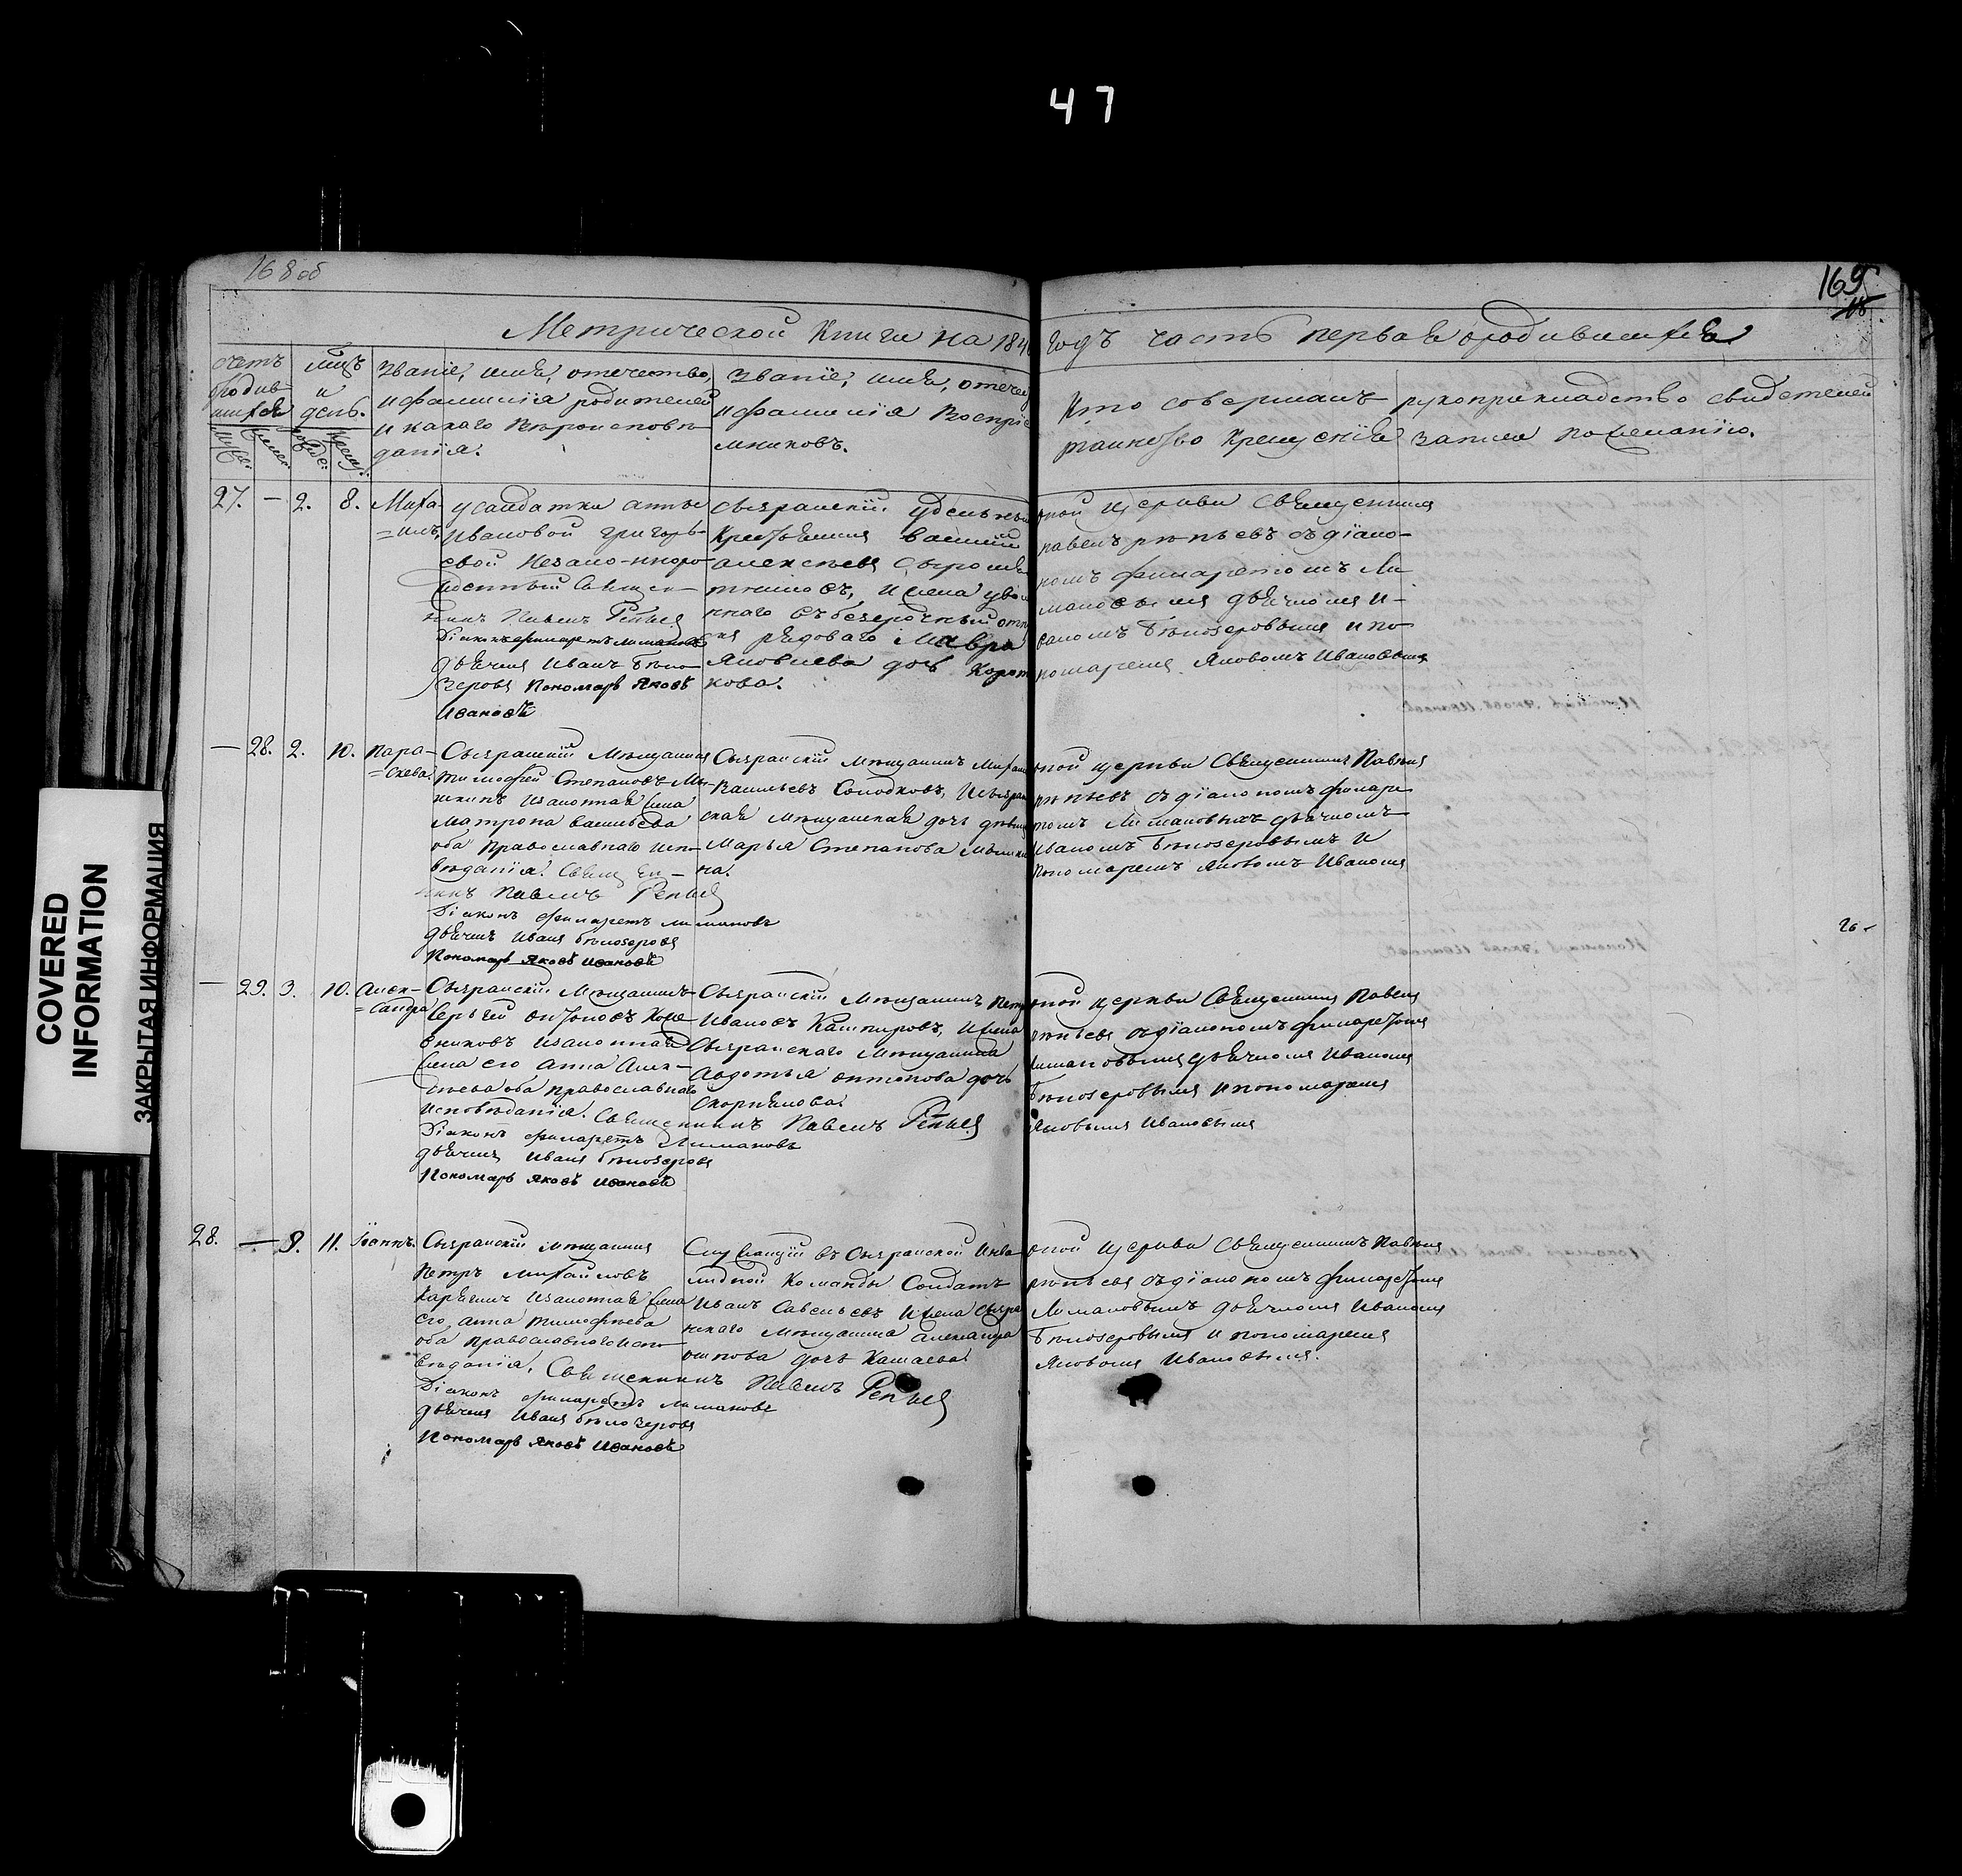 47
168 об
169
Метрической Книги на 184
годъ часть первая о родившихся
счетъ
родив-
шихся
мцъ
и
день.
Званіе, имя, отечество,
и фамилія родителей
и какаго Вѣроисповѣ-
данія.
Званіе, имя, отечес
и фамилія Воспріе
мниковъ.
Кто совершалъ
таинство крещенія
рукоприкладство свидетелей
записи по желанію.
27. — 2. 8. Миха-
=илъ,
у солдатки
Ивановой Григорь-
евой незако-ннорo-
Священ-
никъ Павелъ Репьев
Діаконъ Филаретъ Лимановъ
дьячекъ Иванъ Бѣло-
зеровъ Пономарь Яковъ
Ивановъ
Сызранскій Удельны
Крестьянинъ Василій
Алексѣевъ
и жена уво
ннаго
рядоваго Мавра
Яковлева дочь Корот
кова.
оной церкви Священникъ
Павелъ Рѣпьевъ съ діако-
номъ Филаретомъ Ли
мановымъ дьячкомъ И-
ваномъ Бѣлозеровымъ и по
номаремъ Яковомъ Ивановымъ
— 28. 2. 10. Пара-
=скева.
Сызранскій Мѣщанинъ
Тимофей Степановъ
законная жена
Матрона Васильева
оба Православнаго исп-
вѣданія. Священ-
никъ Павелъ Репьев
Діаконъ Филаретъ Лимановъ
дьячекъ Иванъ Бѣлозеровъ
Пономарь Яковъ Ивановъ
Сызранскій Мѣщанинъ Михаи
Васильевъ Солодковъ, и Сызран
ская Мѣщанская дочь девиц
Марья Степанова
на.
оной церкви Священникъ Павелъ
Рѣпьевъ съ діакономъ Филаре
томъ Лимановымъ дьячкомъ
Иваномъ Бѣлозеровымъ и
пономаремъ Яковомъ Ивановы
26 -
— 29. 3. 10. Алек-
=сандра
Сызранскій Мѣщанинъ
Сергѣй Антоновъ Коже
вниковъ и законная
жена его Анна Алек-
сѣева оба православнаго
исповѣданія. Священникъ Павелъ Репьев
Діаконъ Филаретъ Лимановъ
дьячекъ Иванъ Бѣлозеровъ
Пономарь Яковъ Ивановъ
Сызранскій Мѣщанинъ Петр
Ивановъ Кашпировъ, и жена
Сызранскаго Мѣщанина
Авдотья Антонова дочь
Скорнякова.
оной церкви Священникъ Павелъ
Рѣпьевъ съ діакономъ Филаретомъ
Лимановымъ дьячкомъ Иваномъ
Бѣлозеровымъ и пономаремъ
Яковымъ Ивановымъ
28. — 8. 11. Іоаннъ.
Сызранскій мѣщанинъ
Петръ Михайловъ
и законная жена
его Анна Тимофѣева
оба православнаго испо
вѣданія. Священникъ Павелъ Репьев
Діаконъ Филаретъ Лимановъ
дьячекъ Иванъ Бѣлозеровъ
Пономарь Яковъ Ивановъ
Служащій въ Сызранской Инва
лидной Команды Солдатъ
Иванъ Савельевъ и жена Сызра
нскаго мѣщанина Александра
Осипова дочь Кашаева
оной церкви Священникъ Павелъ
Рѣпьевъ съ діакономъ Филаретомъ
Лимановымъ дьячкомъ Иваномъ
Бѣлозеровымъ и пономаремъ
Яковомъ Ивановымъ.
COVERED
INFORMATION
ЗАКРЫТАЯ ИНФОРМАЦИЯ